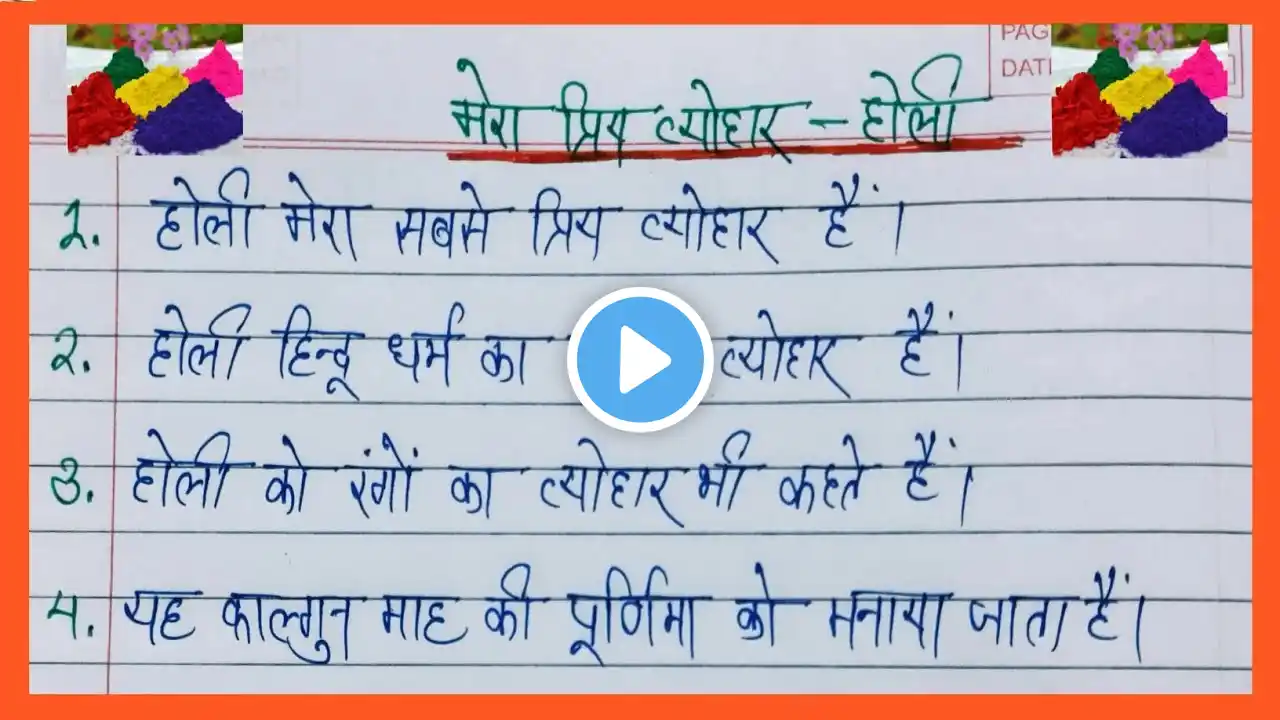 PAG
DATE
मेरा प्रिय त्योहार – होली
1. होली मेरा सबसे प्रिय त्योहार हैं।
२. होली हिन्दू धर्म का त्योहार हैं।
३. होली को रंगों का त्योहार भी कहते हैं।
४. यह फाल्गुन माह की पूर्णिमा को मनाया जाता हैं।